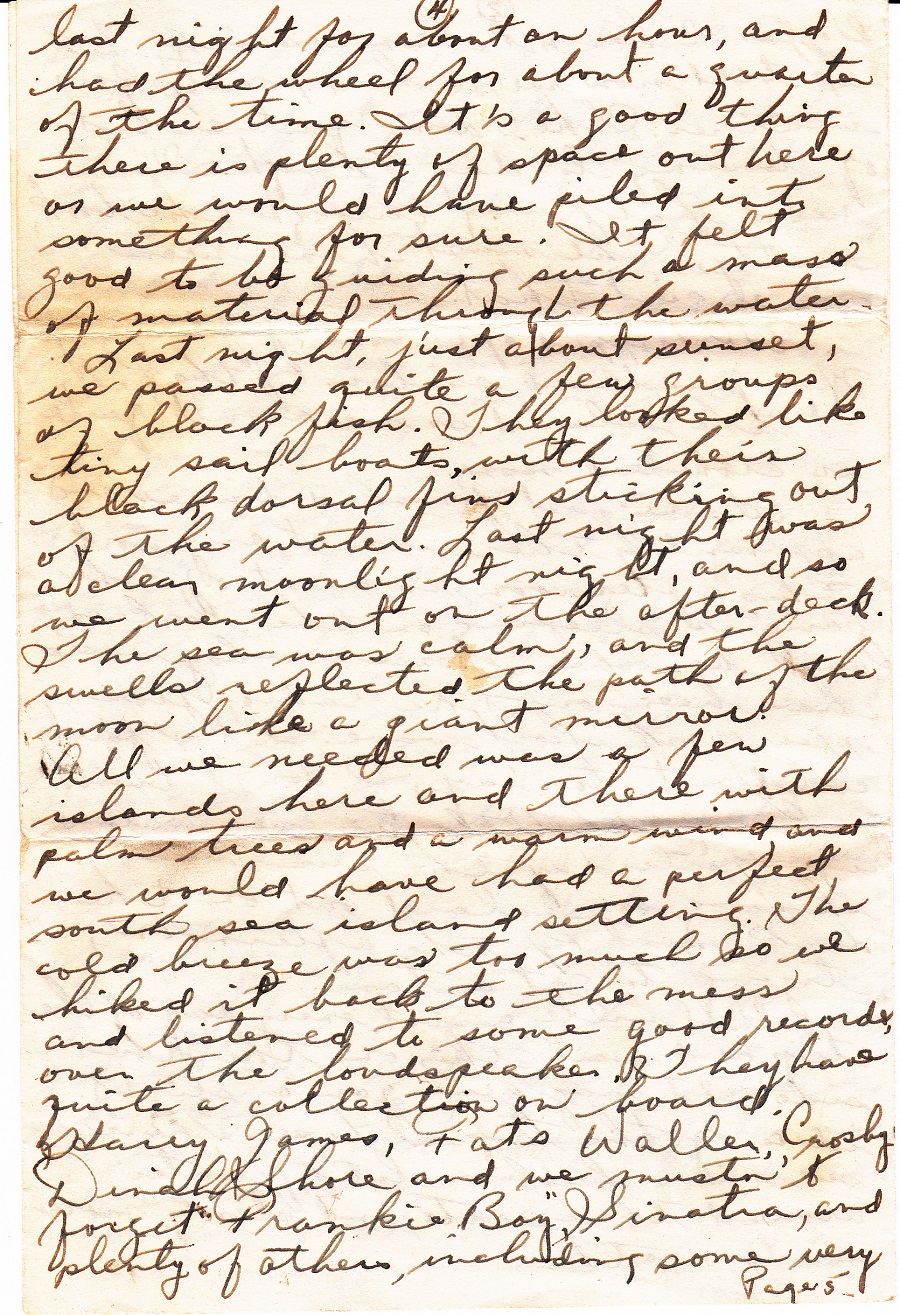 4
last night for about an hour, and
had the wheel for about a quarter
of the time. It's a good thing
there is plenty of space out here
or we would have piled into
something for sure. It felt
good to be guiding such a mass
of material through the water.
Last night, just about sunset,
we passed quite a few groups
of black fish. They looked like
tiny sail boats, with their
black dorsal fins sticking out
of the water. Last night was
a clear moonlight night, and so
we went out on the after-deck.
The sea was calm, and the
swells reflected the path of the
moon like a giant mirror.
All we needed was a few
islands here and there with
palm trees and a warm wind and
we would have had a perfect
south sea island setting. The
cold breeze was too much so we
hiked it back to the mess
and listened to some good records,
over the loudspeaker. They have
quite a collection on board.
Harry James, Fats Waller, Crosby,
Dinah Shore and we mustn't
forget "Frankie Boy" Sinatra, and
plenty of others, including some very
Page 5